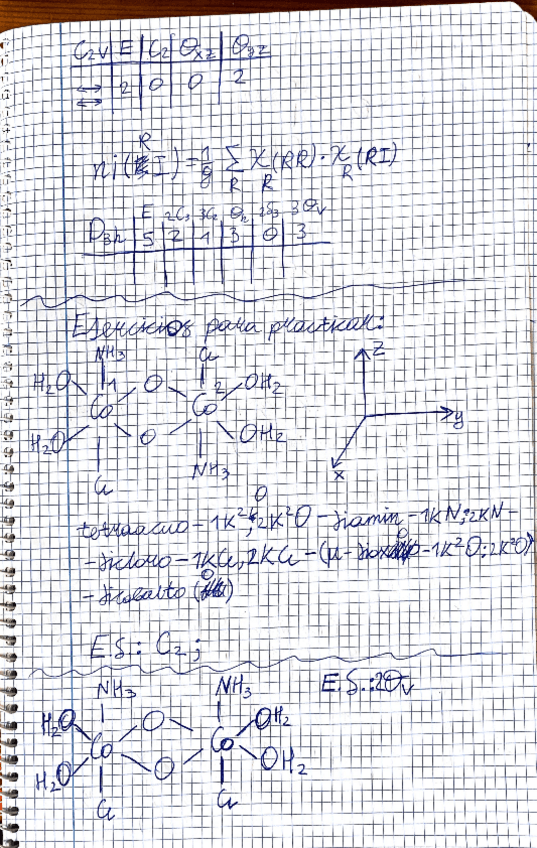 C2v E C2 σxz σyz
↔ ↔ 2 0 0 2
R
ni(RI) = 1/g Σ χ(RR)·χ(RI)
R R R
E 2C3 3C2 σh 2S3 3σv
D3h 5 2 1 3 0 3
Ejercicios para practicar:
NH3 Cl z
H2O 1 O 2 OH2
Co Co
y
H2O O OH2
NH3 x
Cl
O
tetraacuo-1K²O;2K²O-diamin-1KN;2KN-
-dicloro-1KCl,2KCl-(μ-dioxo-1K²O;2K²O)
-dicobalto
E.S.: C2;
NH3 NH3 E.S.: 2σv
H2O O OH2
Co Co
H2O O OH2
Cl Cl